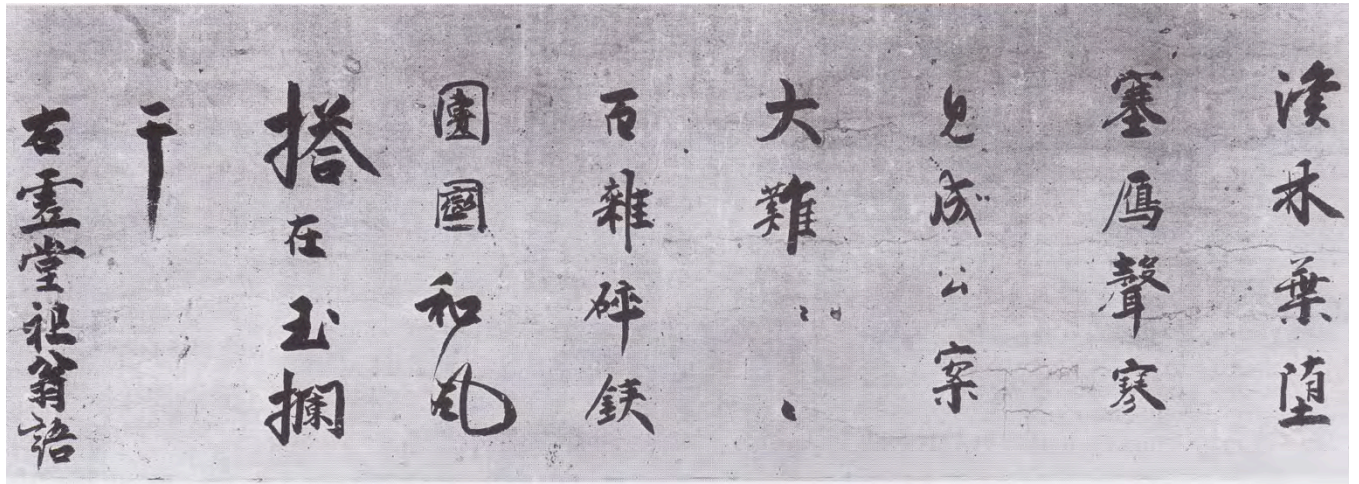 溪林葉堕
塞鴈聲寒
見成公案
大難〻〻
百雜砕鉄
團圝和風
搭在玉欄
干
右虚堂祖翁語